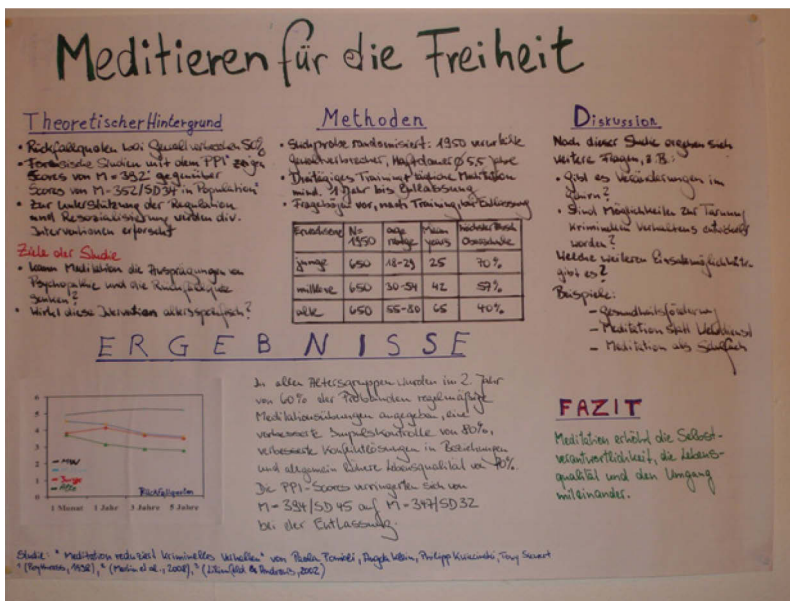 Meditieren für die Freiheit
Theoretischer Hintergrund
• Rückfallquoten bei Gewaltverbrechen 50%
• Forensische Studien mit dem PPI¹ zeigen
Scores von M = 392² gegenüber
Scores von M = 352/SD34 in Population³
• Zur Unterstützung der Regulation
und Resozialisierung werden div.
Interventionen erforscht
Ziele der Studie
• kann Meditation die Ausprägungen von
Psychopathie und die
senken?
• Wirkt diese altersspezifisch?
Methoden
• randomisiert: 1950 verurteilte
Gewaltverbrecher, Haftdauer Ø 5,5 Jahre
• Training tägliche Meditation
mind. 1 Jahr bis Entlassung
• Fragebögen vor, nach Training, bei Entlassung
Erwachsene N= 1950 age range Mean years höchster Abschl. Oberschule
junge 650 18-29 25 70%
mittlere 650 30-54 42 57%
alte 650 55-80 65 40%
Diskussion
Nach dieser Studie ergeben sich
weitere Fragen, z.B.:
• Gibt es Veränderungen im
Gehirn?
• Sind Möglichkeiten zur Tarnung
kriminellen Verhaltens
worden?
Welche weiteren Einsatzmöglichkeiten
gibt es?
Beispiele:
- Gesundheitsförderung
- Meditation statt
- Meditation als Schulfach
ERGEBNISSE
6
5
4
3
2
1
0
MW
Junge
Alte
Rückfallquoten
1 Monat 1 Jahr 3 Jahre 5 Jahre
In allen Altersgruppen wurden im 2. Jahr
von 60% der Probanden regelmäßige
Meditationsübungen angegeben, eine
verbesserte Impulskontrolle von 80%,
verbesserte Konfliktlösungen in Beziehungen
und allgemein höhere Lebensqualität von 70%.
Die PPI-Scores verringerten sich von
M = 394/SD 45 auf M = 347/SD32
bei der Entlassung.
FAZIT
Meditation erhöht die Selbst-
verantwortlichkeit, die Lebens-
qualität und den Umgang
miteinander.
Studie: "Meditation reduziert kriminelles Verhalten" von Paola Angela Klein, Philipp Tony
1998), ² et al., 2008), ³ (Lilienfeld & Andrews, 2002)